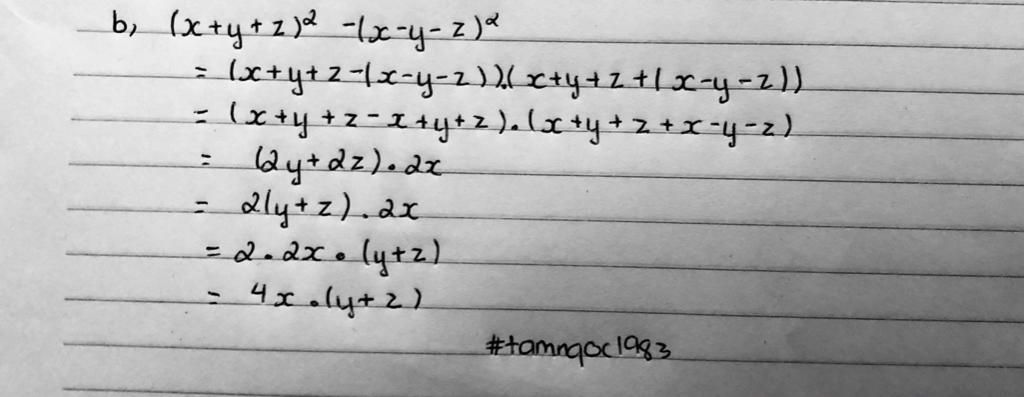 b, (x+y+z)² -(x-y-z)²
= (x+y+z-(x-y-z)).(x+y+z+(x-y-z))
= (x+y+z-x+y+z).(x+y+z+x-y-z)
= (2y+2z).2x
= 2(y+z).2x
= 2.2x.(y+z)
= 4x.(y+z)
#tamngoc1983